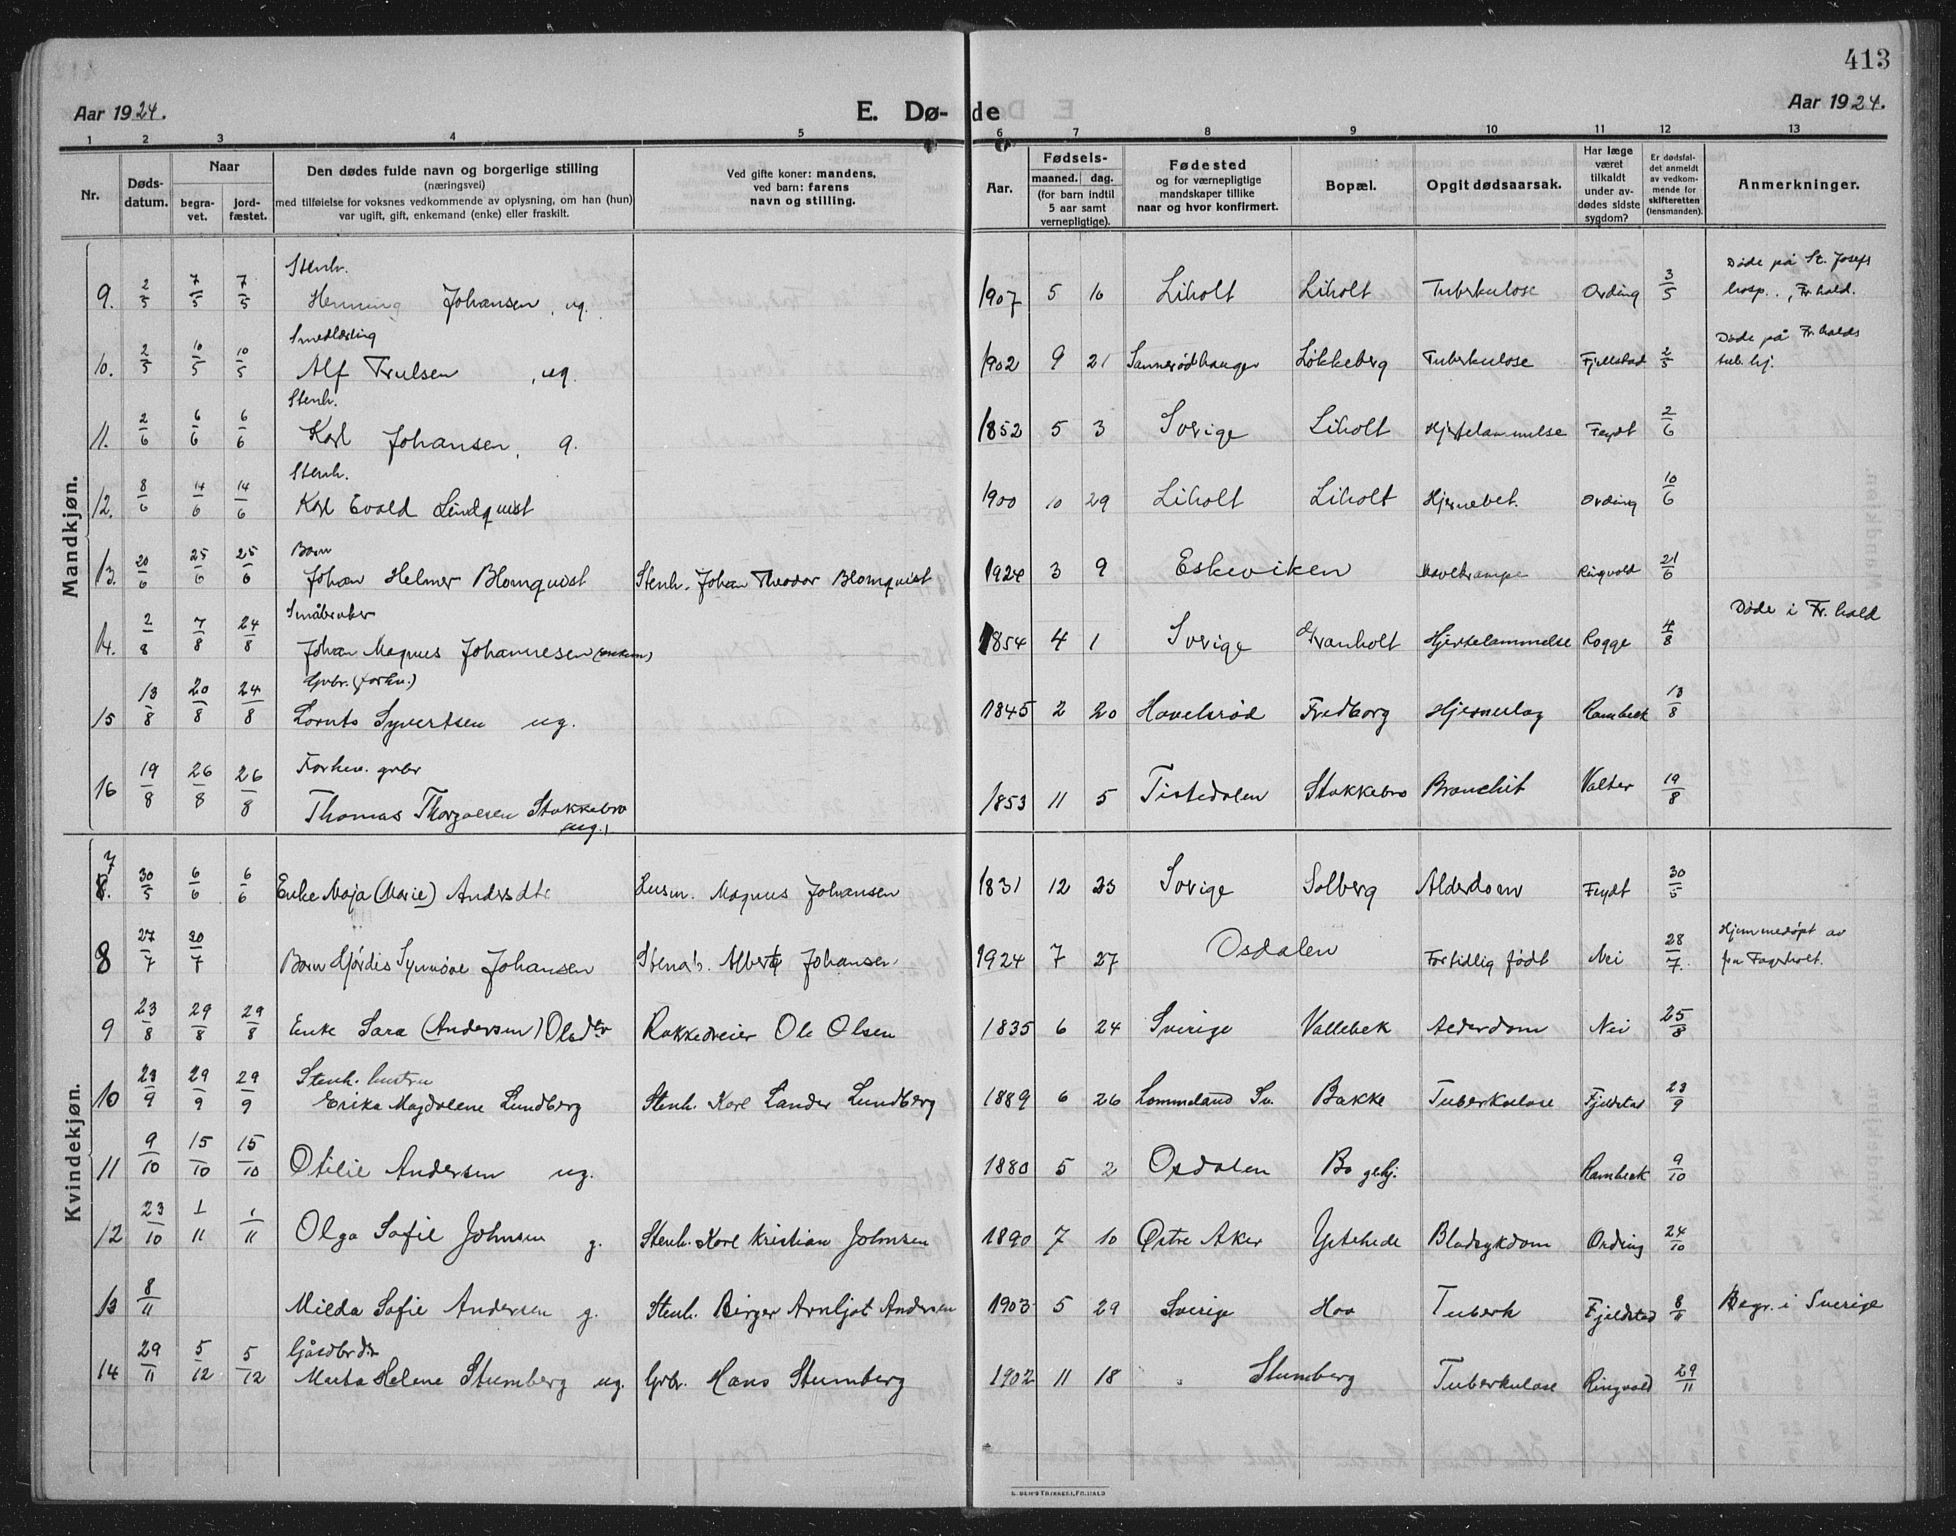 413
Aar 1924.
E. Dø- de
Aar 1924.
1 2 3 4 5 6 7 8 9 10 11 12 13
Nr.
Døds-
datum.
Naar
begra-
vet.
jord-
fæstet.
Den dødes fulde navn og borgerlige stilling
(næringsvei)
med tilføielse for voksnes vedkommende av oplysning, om han (hun)
var ugift, gift, enkemand (enke) eller fraskilt.
Ved gifte koner: mandens,
ved barn: farens
navn og stilling.
Aar.
Fødsels-
maaned. dag.
(for barn indtil
5 aar samt
vernepligtige).
Fødested
og for værnepligtige
mandskaper tillike
naar og hvor konfirmert.
Bopæl.
Opgit dødsaarsak.
Har læge
været
tilkaldt
under av-
dødes sidste
sygdom?
Er dødsfal-
det anmeldt
av vedkom-
mende for
skifteretten
(lensmanden).
Anmerkninger.
Mandkjøn.
Stenh. Døde på St. Josefs
9. 2/5 7/5 7/5 Henning Johansen, ug. 1907 5 16 Liholt Liholt Tuberkulose Ording 3/5 hosp., Fr.hald.
Døde på Fr.halds
10. 2/5 10/5 10/5 Alf Trulsen, ug. 1902 9 21 Sannerødhaugen Løkkeberg Tuberkulose Fjellstad 2/5 tub. hj.
Stenh.
11. 2/6 6/6 6/6 Karl Johansen, g. 1852 5 3 Sverige Liholt Hjertelammelse Feydt 2/6
Stenh.
12. 8/6 14/6 14/6 Karl Evald Lindquist 1900 10 29 Liholt Liholt Hjernebet. Ording 10/6
Barn
13. 20/6 25/6 25/6 Johan Helmer Blomquist Stenh. Johan Theodor Blomquist 1924 3 9 Eskeviken Mavekrampe Ringvold 21/6
Småbruker Døde i Fr.hald
14. 2/8 7/8 24/8 Johan Magnus Johannesen (enkem) 1854 4 1 Sverige Tranholt Hjertelammelse Rogge 4/8
Grbr. (forhv.)
15 13/8 20/8 24/8 Lornts Syvertsen ug. 1845 2 20 Havelsrød Fredborg Hjerneslag Rambeck 13/8
Forhen. grbr
16 19/8 26/8 26/8 Thomas Thorgalsen Stokkebro 1853 11 5 Tistedalen Stokkebro Bronchit Valter 19/8
ug.
Kvindekjøn.
7
8. 30/5 6/6 6/6 Enke Maja (Marie) Andersdtr Husm. Magnus Johansen 1831 12 23 Sverige Solberg Alderdom Feydt 30/5
Hjemmedøpt av
8 27/7 30/7 Barn Hjördis Synnöve Johansen Stenh. Albert Johansen 1924 7 27 Osdalen Fortidlig født Nei 28/7 fru Fagerholt.
9 23/8 29/8 29/8 Enke Sara (Andersen) Olsdtr Rakkedreier Ole Olsen 1835 6 24 Sverige Vallebek Alderdom Nei 25/8
Stenh. hustru
10 23/9 29/9 29/9 Erika Magdalene Lundberg Stenh. Karl Sander Lundberg 1889 6 26 Lommeland Sv. Bakke Tuberkulose Fjeldstad 23/9
11 9/10 15/10 15/10 Otilie Andersen ug. 1880 5 2 Osdalen Bo Rambeck 9/10
12 23/10 1/11 1/11 Olga Sofie Johnsen g. Stenh. Karl Kristian Johnsen 1890 7 10 Østre Aker Ystehede Blodsykdom Ording 24/10
13 8/11 Milda Sofie Andersen g. Stenh. Birger Arnljot Andersen 1903 5 29 Sverige Hov Tuberk Fjeldstad 8/11 Begr. i Sverige
Gårdbrdtr
14 29/11 5/12 5/12 Marta Helene Stumberg ug. Grbr. Hans Stumberg 1902 11 18 Stumberg Tuberkulose Ringvold 29/11